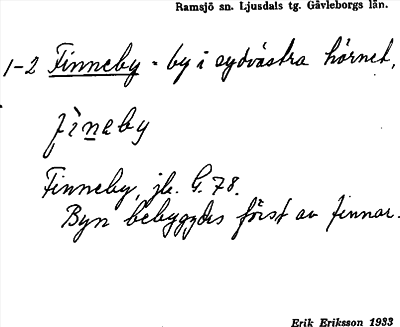 Ramsjö sn. Ljusdals tg. Gävleborgs län.
1-2 Finneby - by i sydvästra hörnet,
fìneby
Finneby, jk. G.78.
Byn bebyggdes först av finnar.
Erik Eriksson 1933